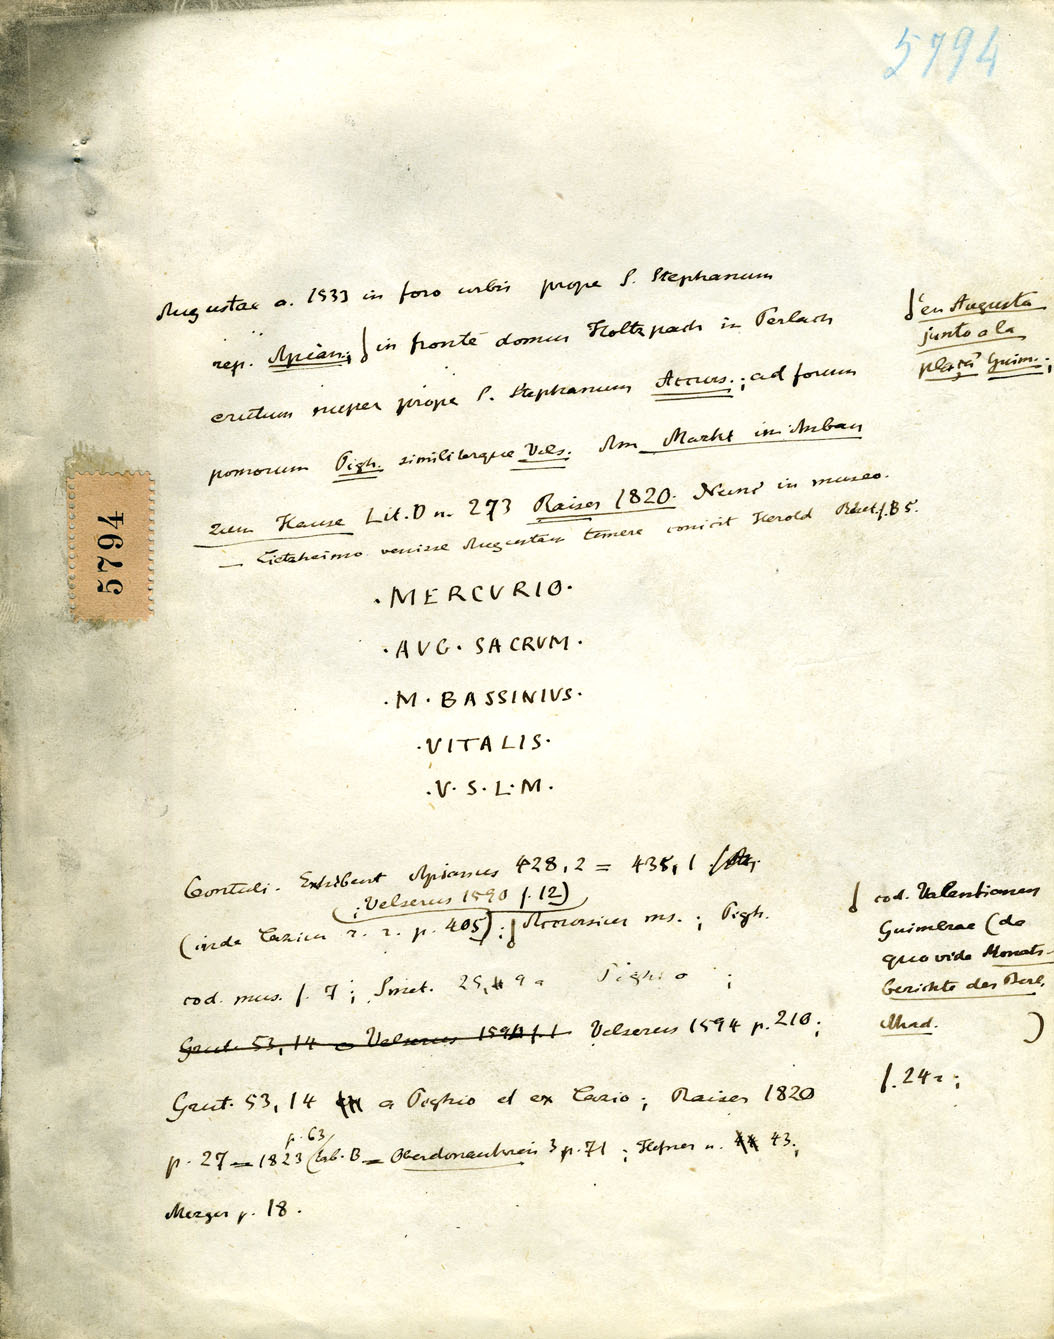 5794
Augustae a. 1533 in foro urbis prope S. Stephanum
rep. Apian.; ⌠ in fronte domus Holtzpach in Perlach
⌠ en Augusta
junto a la
plaça Guim.;
erutum nuper prope S. Stephanum Accurs.; ad forum
pomorum Pigh. similiterque Vels. Am Markt im Anbau
zum Hause Lit. D n. 273 Raiser 1820. Nunc in museo.
— venisse Augustam temere conicit Herold f. B 5.
5794
·MERCVRIO·
·AVG·SACRVM·
·M·BASSINIVS·
·VITALIS·
·V·S·L·M·
Contuli. Exhibent Apianus 428,2 = 435,1
; Velserus 1590 f. 12)
(inde Lazius r. r. p. 405); ⌠ Accursius ms.; Pigh.
⌠ cod. Valentianus
Guimerae (de
quo vide Monats-
berichte der Berl.
Akad. )
f. 24;
cod. mus. f. 7; Smet. 25, 9 a Pighio;
Grut. 53,14 a Velserus f. 1 Velserus 1594 p. 210;
Grut. 53,14 a Pighio et ex Lazio; Raiser 1820
p. 63
p. 27 = 1823 B = Oberdonaukreis 3 p. 71; Hefner n. 43;
Mezger p. 18.